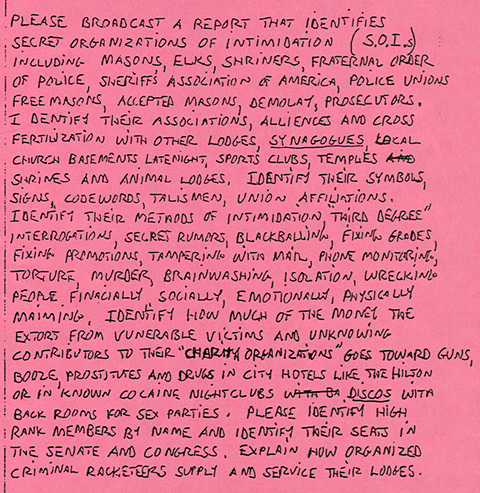 PLEASE BROADCAST A REPORT THAT IDENTIFIES
SECRET ORGANIZATIONS OF INTIMIDATION (S.O.I.s)
INCLUDING MASONS, ELKS, SHRINERS, FRATERNAL ORDER
OF POLICE, SHERIFF'S ASSOCIATION OF AMERICA, POLICE UNIONS
FREEMASONS, ACCEPTED MASONS, DEMOLAY, PROSECUTORS.
IDENTIFY THEIR ASSOCIATIONS, ALLIENCES AND CROSS
FERTILIZATION WITH OTHER LODGES, SYNAGOGUES, LOCAL
CHURCH BASEMENTS LATENIGHT, SPORTS CLUBS, TEMPLES AND
SHRINES AND ANIMAL LODGES. IDENTIFY THEIR SYMBOLS,
SIGNS, CODEWORDS, TALISMEN, UNION AFFILIATIONS.
IDENTIFY THEIR METHODS OF INTIMIDATION, THIRD DEGREE"
INTERROGATIONS, SECRET RUMORS, BLACKBALLING, FIXING GRADES,
FIXING PROMOTIONS, TAMPERING WITH MAIL, PHONE MONITORING,
TORTURE, MURDER, BRAINWASHING, ISOLATION, WRECKING
PEOPLE FINACIALLY, SOCIALLY, EMOTIONALLY, PHYSICALLY
MAIMING. IDENTIFY HOW MUCH OF THE MONEY THE
EXTORT FROM VUNERABLE VICTIMS AND UNKNOWING
CONTRIBUTORS TO THEIR "CHARITY ORGANIZATIONS" GOES TOWARD GUNS,
BOOZE, PROSTITUTES AND DRUGS IN CITY HOTELS LIKE THE HILTON
OR IN KNOWN COCAINE NIGHTCLUBS WITH BA DISCOS WITH
BACK ROOMS FOR SEX PARTIES. PLEASE IDENTIFY HIGH
RANK MEMBERS BY NAME AND IDENTIFY THEIR SEATS IN
THE SENATE AND CONGRESS. EXPLAIN HOW ORGANIZED
CRIMINAL RACKETEERS SUPPLY AND SERVICE THEIR LODGES.